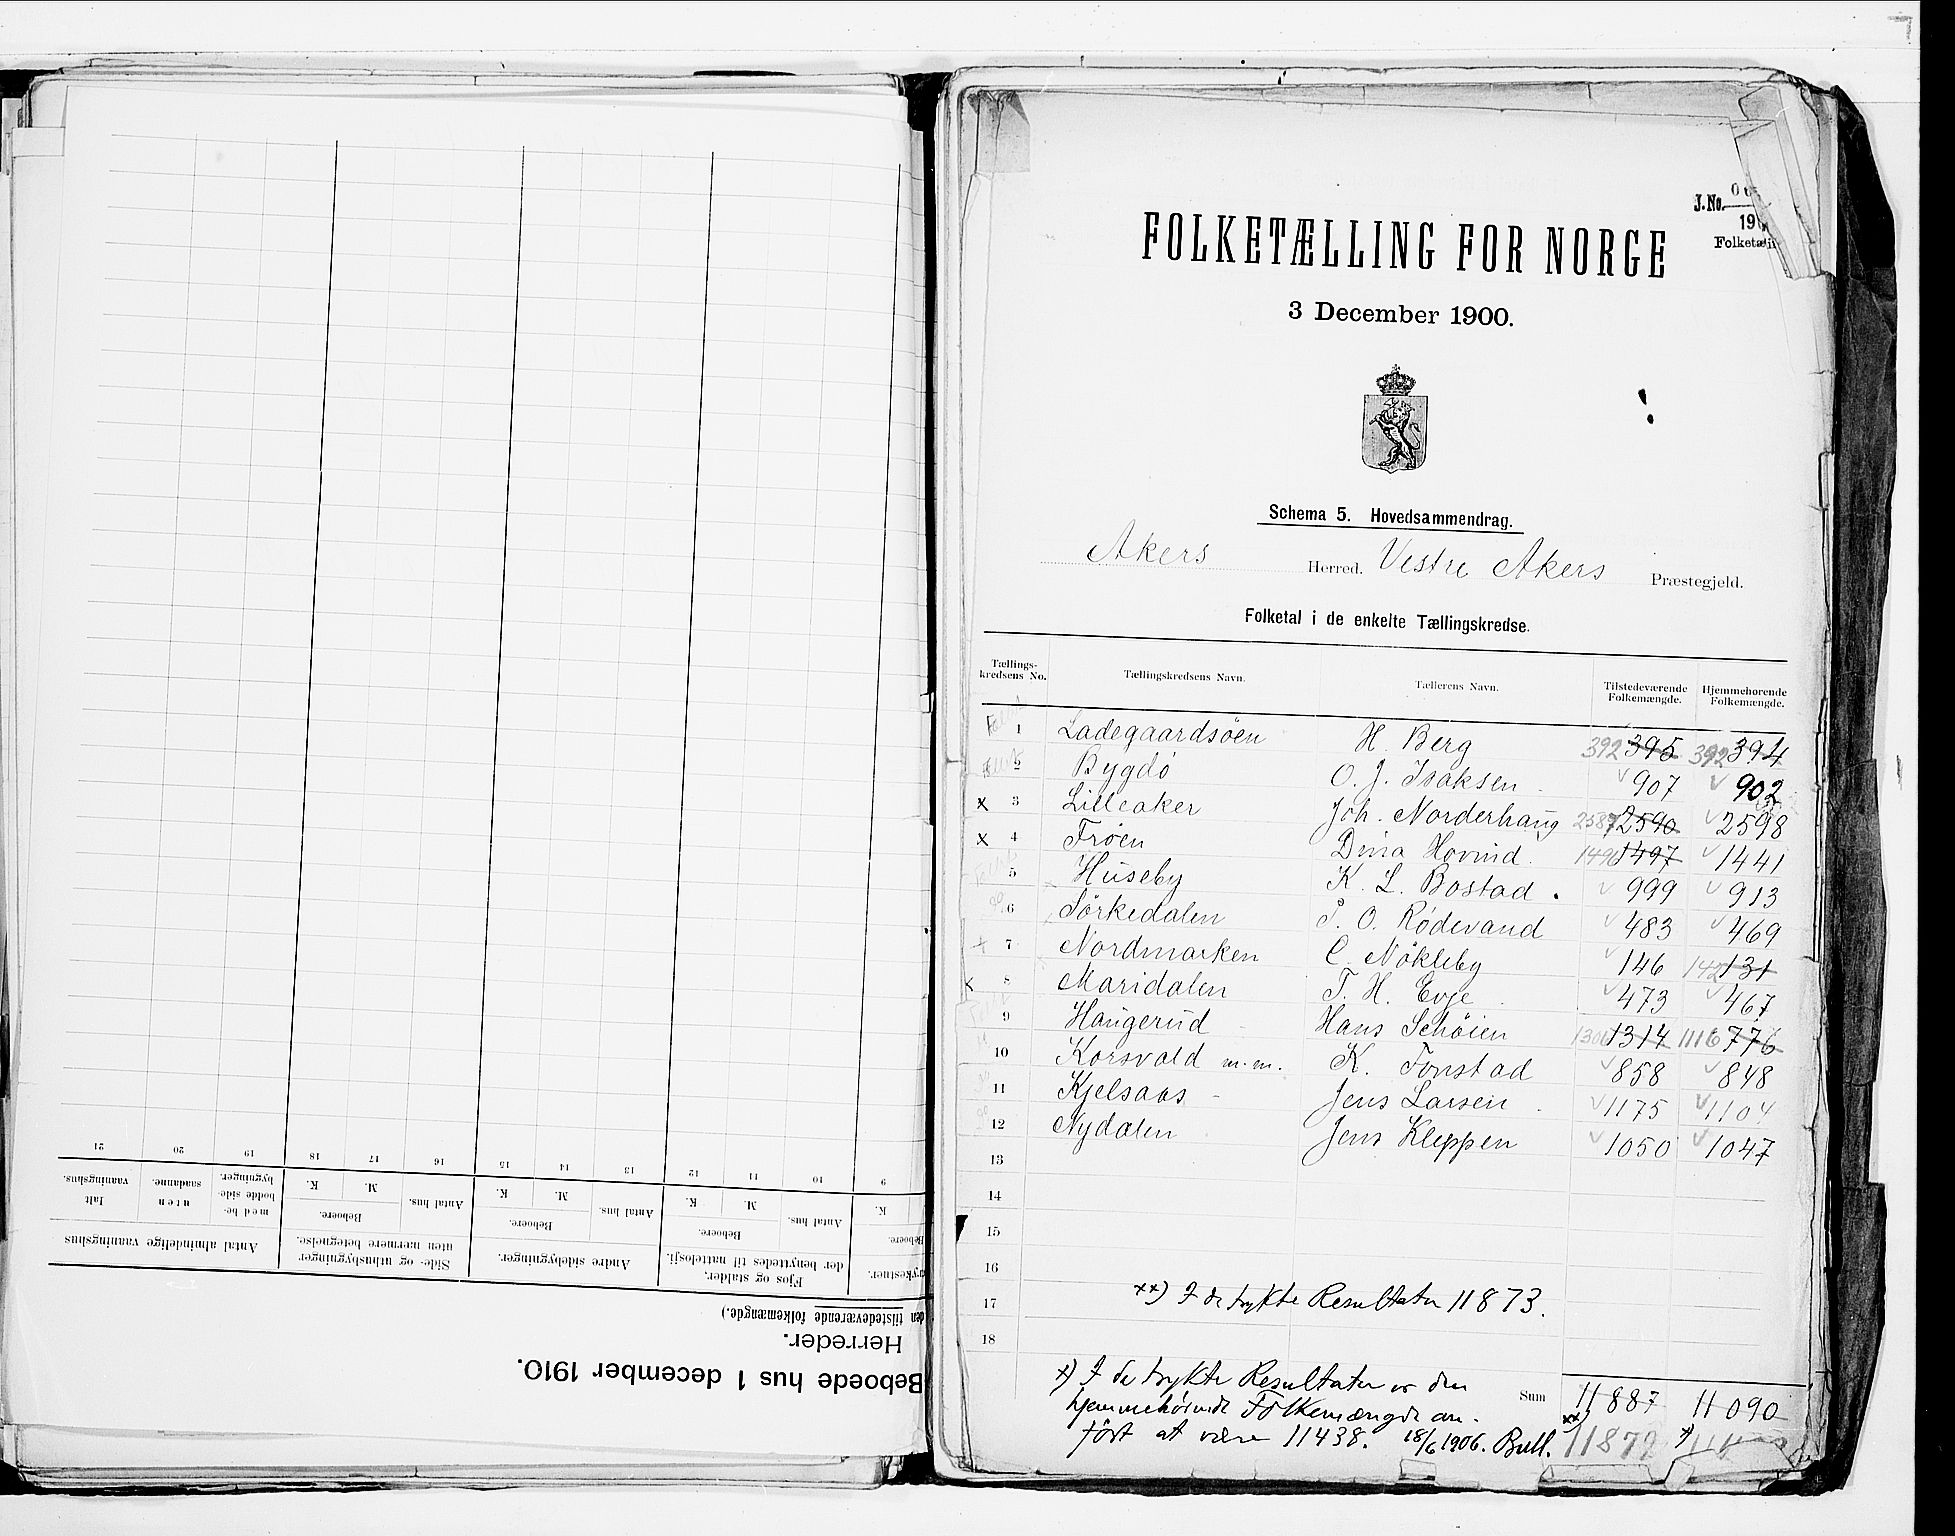 21 20 19 18 17 16 15 14 13 12 11 10 9
Antal almindelige vaaningshus
Ialt vaaningshus.
uten saadanne.
med be-
bodde side-
bygninger.
Side- og uthusbygninger
uten nærmere betegnelse.
Andre sidebygninger.
Fjos og stalder
der benyttedes til nattelosji.
Antal hus.
Beboere.
M. K.
den tilstedeværende folkemængde.)
Herreder.
Beboede hus 1 december 1910.
J.No.
19
FOLKETÆLLING FOR NORGE
3 December 1900.
Schema 5. Hovedsammendrag.
Akers Herred. Vestre Akers Præstegjeld.
Folketal i de enkelte Tællingskredse.
Tællings-
kredsens No. Tællingskredsens Navn. Tællerens Navn. Tilstedeværende
Folkemængde. Hjemmehørende
Folkemængde.
1 Ladegaardsöen H. Berg 392 395 392 394
2 Bygdö O. J. Isaksen 907 902
x 3 Lilleaker Joh. Norderhaug 2587 2590 2598
x 4 Fröen Dina Hovind. 1497 1441
5 Huseby K. L. Bostad. 999 913
6 Sörkedalen P. O. Rödevand 483 469
7 Nordmarken C. Nökleby 146 142 131
x 8 Maridalen T. H. Evje 473 467
9 Haugerud Hans Schöien 1314 1116 776
10 Korsvold m.m. K. Fonstad 858 848
11 Kjelsaas Jens Larsen 1175 1104
12 Nydalen Jens Kleppen 1050 1047
13
14
15
16
17 xx) I de trykte Resultater 11873.
18
x) I de trykte Resultater er den
hjemmehörende Folkemængde an-
fört at være 11438. 18/6 1906. Bull.
Sum 11887 11090
xx) 11872 x)